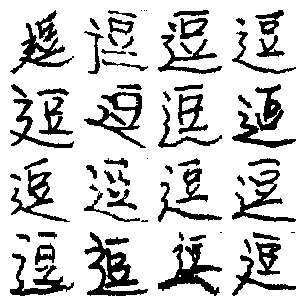 逗逗逗逗
逗逗逗逗
逗逗逗逗
逗逗逗逗